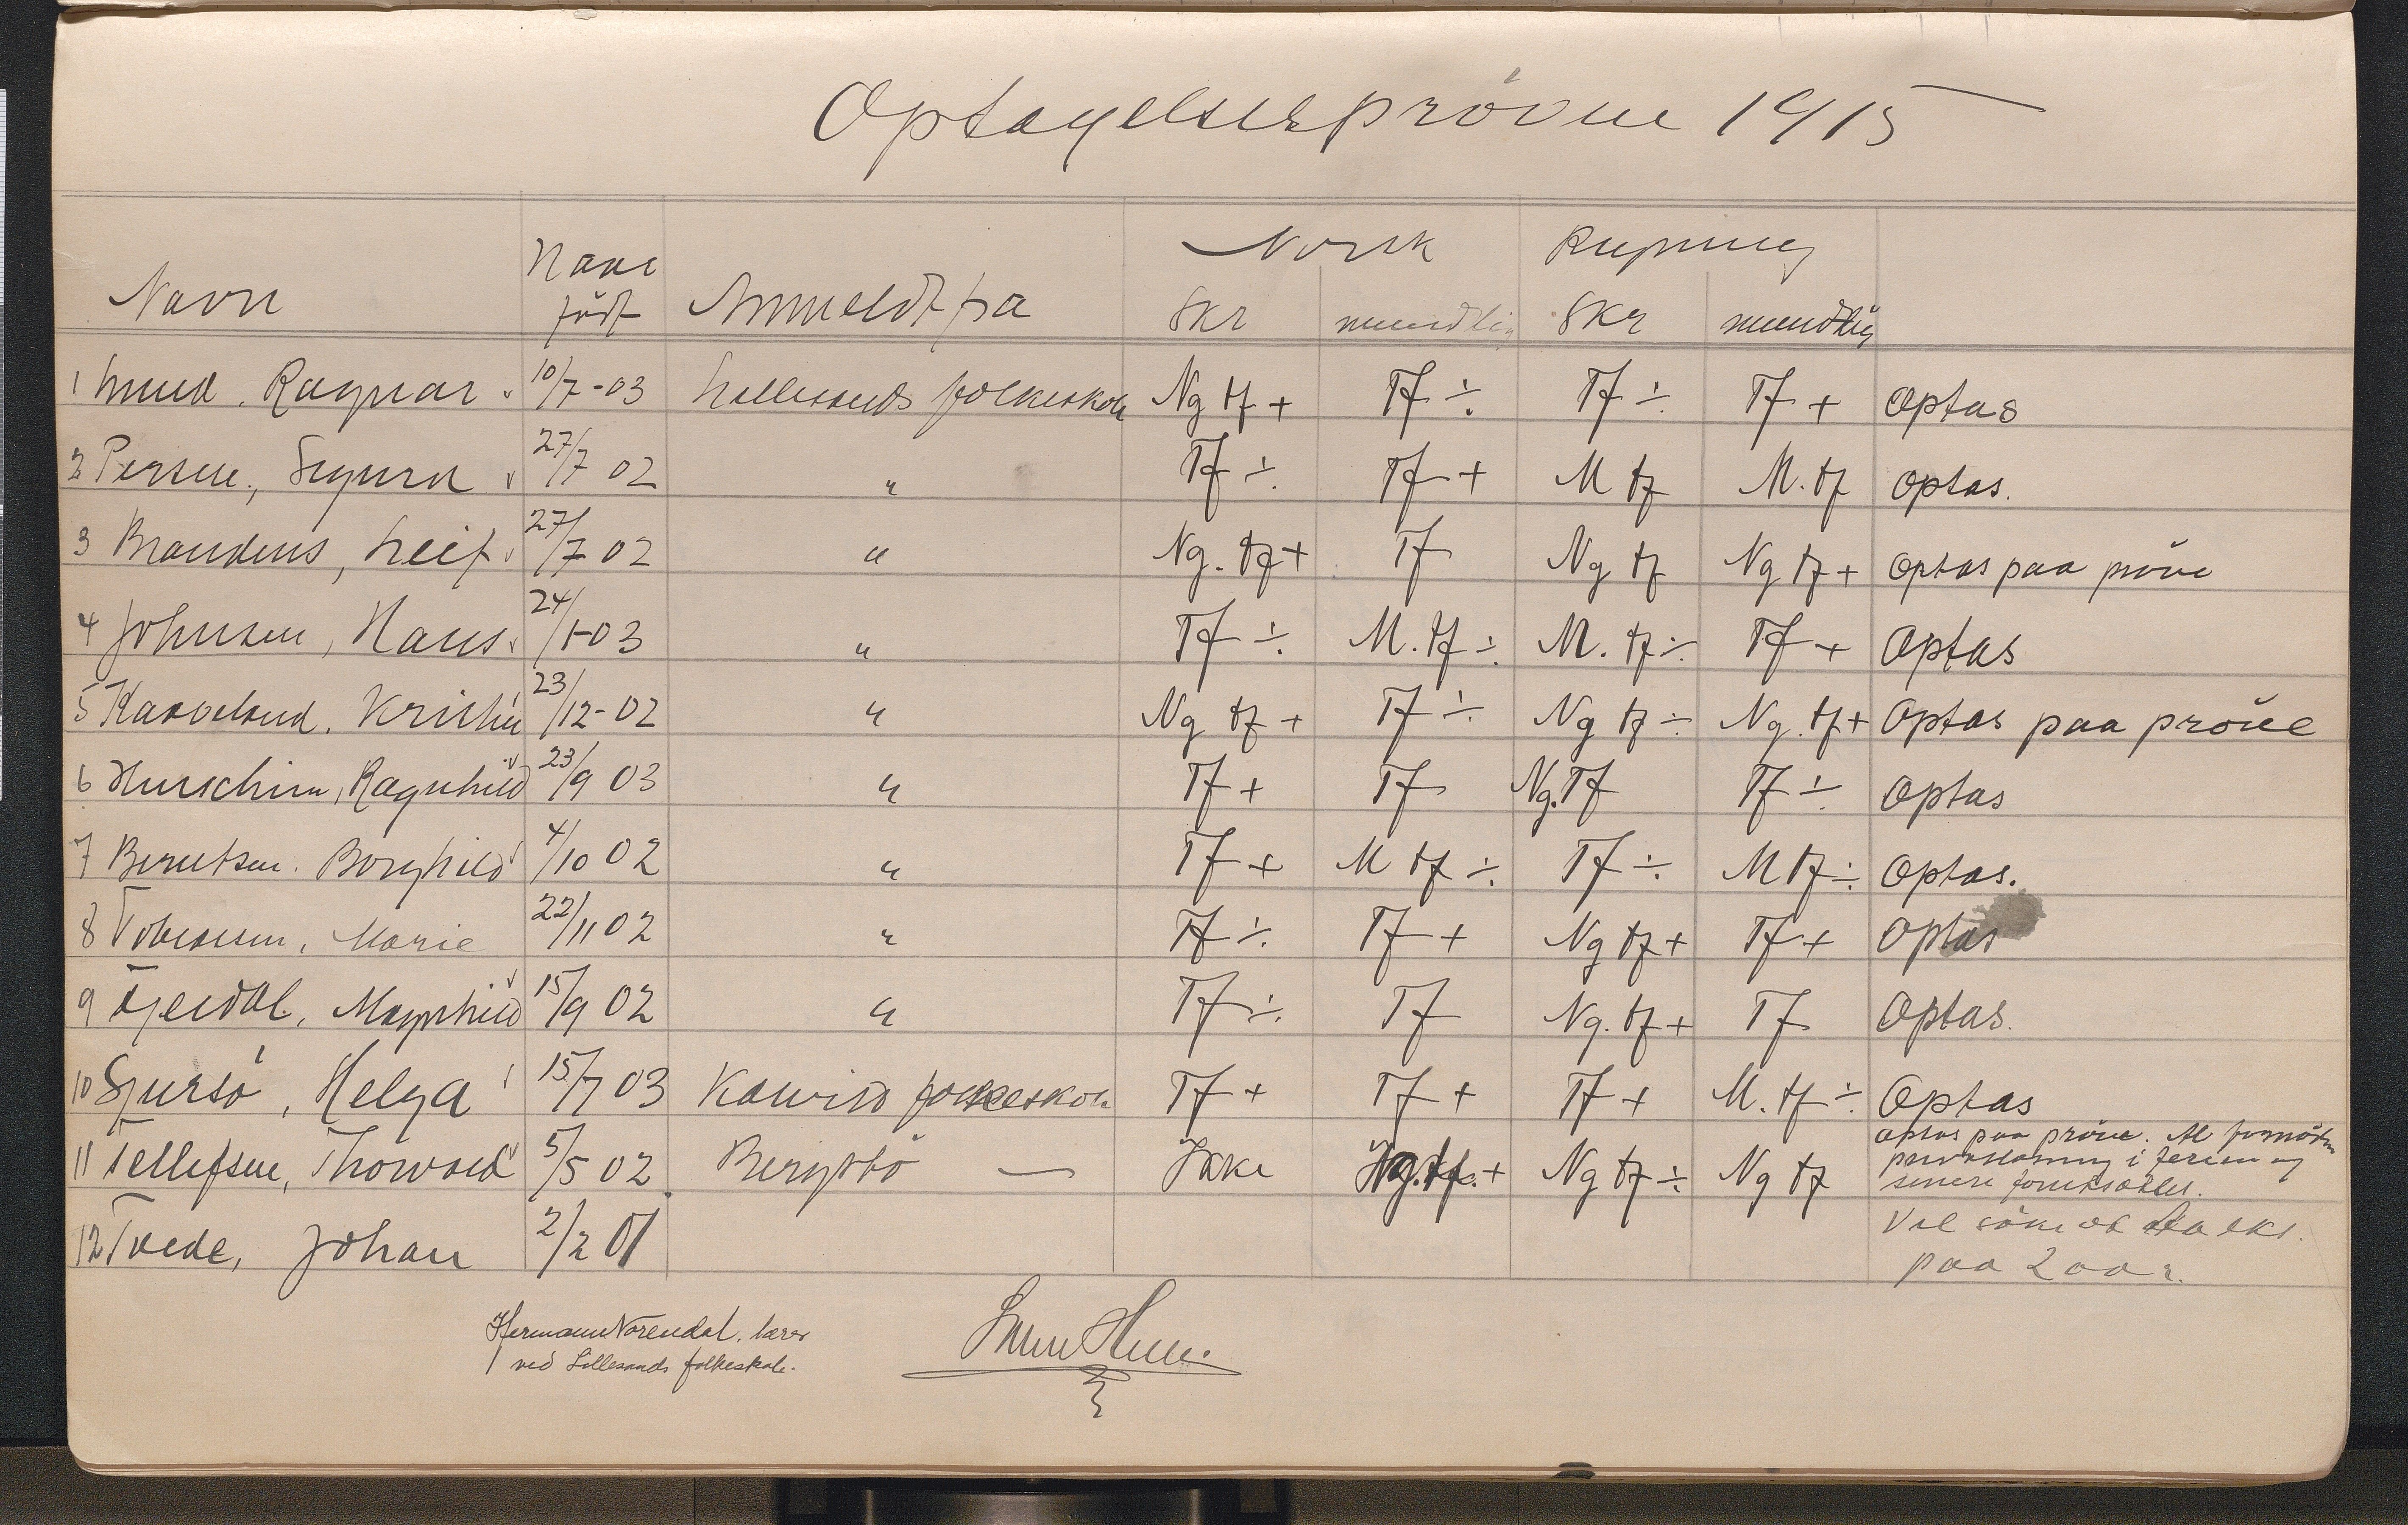 Optagelsesprøven 1915
Navn Naar født Anmeldt fra Norsk Regning
Skr mundtlig Skr mundtlig
1 Lund, Ragnar 10/7-03 Lillesands folkeskole Ng tf + Tf ÷ Tf ÷ Tf + Optas
2 Persen, Sigurd 27/7 02 " Tf ÷ Tf + M tf M. tf optas.
3 Leif 27/7 02 " Ng. tf + Tf Ng tf Ng tf + optas paa prøve
4 Johnsen, Hans 24/1-03 " Tf ÷ M. tf ÷ M. tf ÷ Tf + Optas
5 Kaaveland, Kristin 23/12-02 " Ng tf + Tf ÷ Ng tf ÷ Ng. tf + Optas paa prøve
6 Ragnhild 23/9 03 " Tf + Tf Ng. Tf Tf ÷ Optas
7 Berntsen, Borghild 4/10 02 " Tf + M tf ÷ Tf ÷ M tf ÷ Optas.
8 Tobiassen, Marie 22/11 02 " Tf ÷ Tf + Ng tf + Tf + Optas
9 Magnhild 15/9 02 " Tf ÷ Tf Ng. tf + Tf Optas.
10 Helga 15/7 03 folkeskole Tf + Tf + Tf + M. tf ÷ Optas
11 Tellefsen, Thorvald 5/5 02 — Ikke Ng. tf. + Ng tf ÷ Ng tf optas paa prøve.
i ferien og
senere
12 Tvede, Johan 2/2 01 Vil
paa 2 aar.
Hermann Norendal, lærer
ved Lillesands folkeskole.